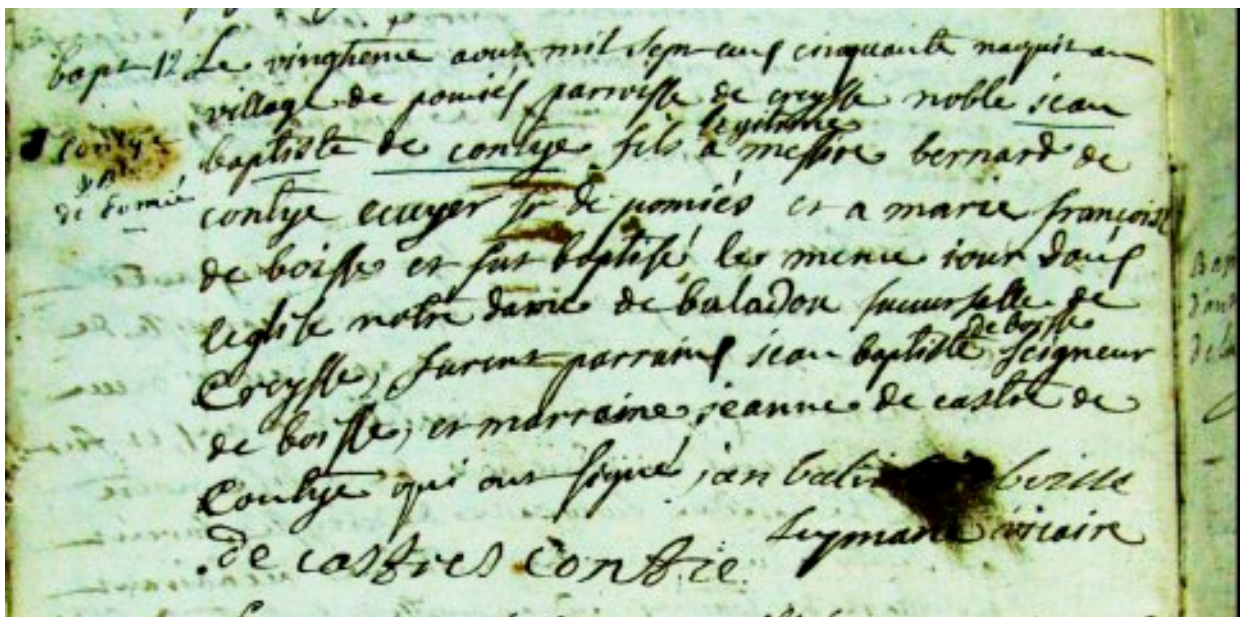 bapt 12 Le vingtieme aout mil sept cens cinquante naquit au
village de pomiés parroisse de creysse noble jean
contye
baptiste de contye fils legitime a messire bernard de
de pomié
contye ecuyer sr de pomiés et a marie françoise
de boisse et fut baptisé les meme iour dans
leglise notre dame de baladou succurssalle de
Creysse, furent parrains jean baptiste de boisse seigneur
de boisse, et marraine jeanne de castre de
Contye qui ont signé jan batis boisse
vicaire
de castres Contie